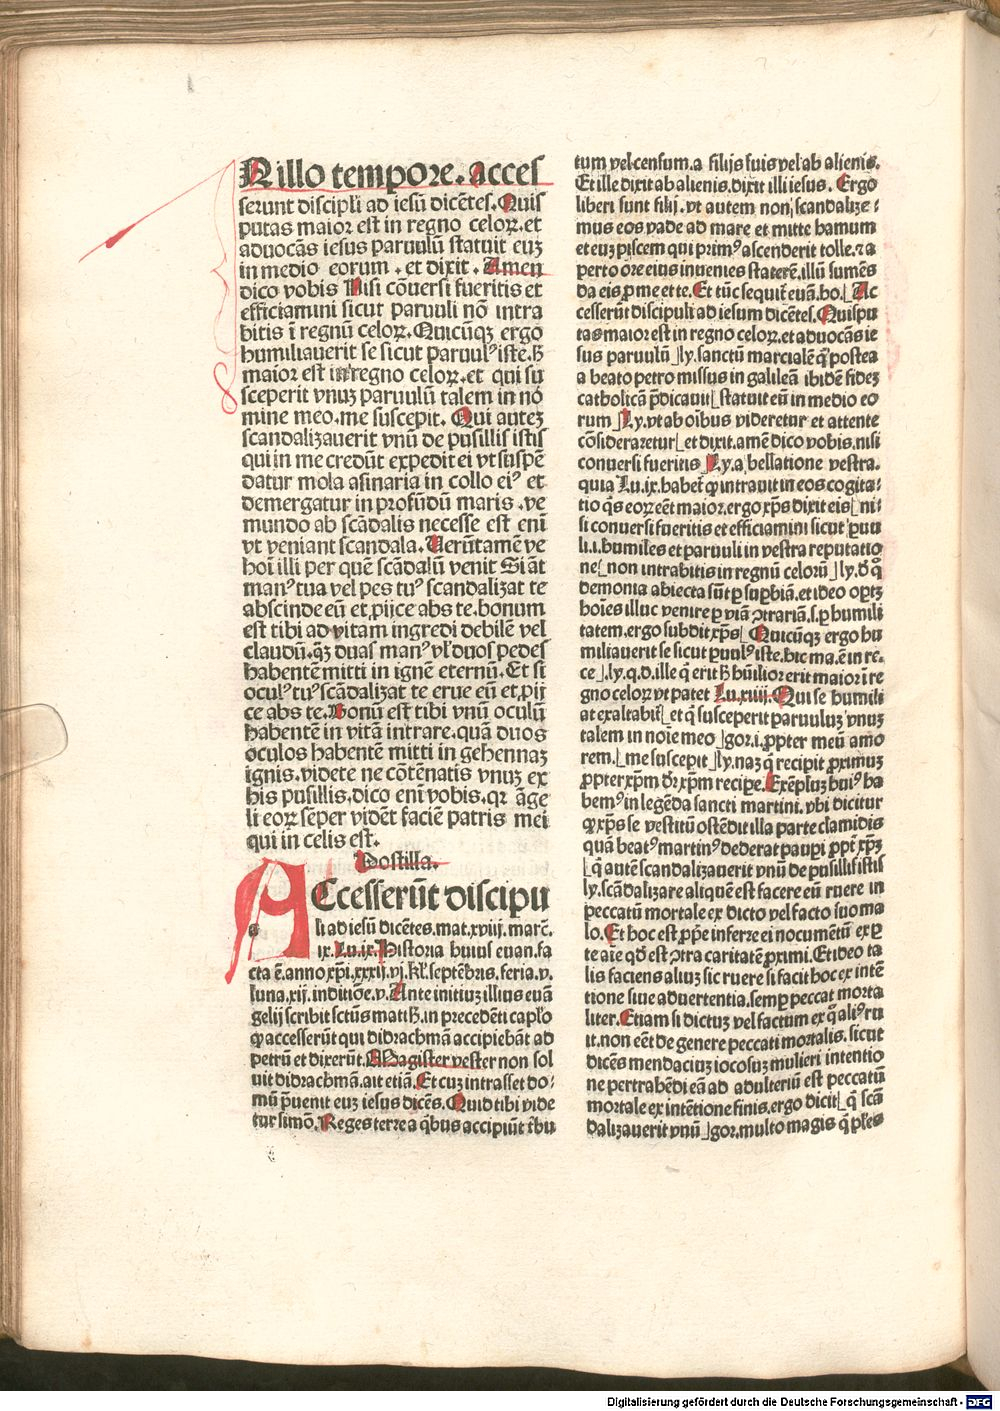 N illo tempore. acces
serunt discipli ad iesū dicētes. Quis
putas maior est in regno celoꝝ. et
aduocās iesus paruulū statuit euꝫ
in medio eorum. et dixit. Amen
dico vobis Nisi cōuersi fueritis et
efficiamini sicut paruuli nō intra
bitis ī regnū celoꝝ. Quicūqꝫ ergo
humiliauerit se sicut paruulꝰ iste. hꝭ
maior est in regno celoꝝ. et qui su
sceperit vnuꝫ paruulū talem in no
mine meo. me suscepit. Qui auteꝫ
scandalizauerit vnū de pusillis istis
qui in me credūt expedit ei vt suspē
datur mola asinaria in collo eiꝰ et
demergatur in profūdū maris. ve
mundo ab scādalis necesse est enī
vt veniant scandala. Verūtamē ve
hoī illi per quē scādalū venit Si āt
manꝰ tua vel pes tuꝰ scandalizat te
abscinde eū et ꝓijce abs te. bonum
est tibi ad vitam ingredi debilē vel
claudū. qꝫ duas manꝰ vl̓ duos pedes
habentē mitti in ignē eternū. Et si
oculꝰ tuꝰ scādalizat te erue eū et ꝓij
ce abs te. Bonū est tibi vnū oculū
habentē in vitā intrare. quā duos
oculos habentē mitti in gehennaꝫ
ignis. videte ne cōtēnatis vnuꝫ ex
his pusillis. dico enī vobis. qꝛ āge
li eoꝝ seper vidēt faciē patris mei
qui in celis est.
Postilla.
ACcesserūt discipu
li ad iesū dicētes. mat. xviij. marc̄.
ix. Lu. ix. Historia huius euan. fa
cta ē. anno xp̄i. xxxij. vj. kl̓. septēbris. feria. v.
luna. xij. inditiōe. v. Ante initiuꝫ illius euā
gelij scribit sctūs mati hꝭ. in precedēti capl̓o
ꝙ accesserūt qui didrachmā accipiebāt ad
petrū et dixerūt. Magister vester non sol
uit didrachmā. ait etiā. Et cuꝫ intrasset do⸗
mū p̄uenit euꝫ iesus dicēs. Quid tibi vide
tur simō. Reges terre a qͥbus accipiūt t̓bu
tum vel censum. a filijs suis vel ab alienis.
Et ille dixit ab alienis. dixit illi iesus. Ergo
liberi sunt filij. vt autem non scandalize⸗
mus eos vade ad mare et mitte hamum
et euꝫ piscem qui primꝰ ascenderit tolle. ⁊ a
perto ore eius inuenies staterē. illū sumēs
da eis ꝓ me et te. Et tūc sequit̓ euā. ho.[ Ac
cesserūt discipuli ad iesum dicētes. Quis pu
tas maior est in regno celoꝝ. et aduocās ie
sus paruulū ]ly. sanctū marcialē qͥ postea
a beato petro missus in galileā ibidē fideꝫ
catholicā p̄dicauit[ statuit eū in medio eo
rum ]Ly. vt ab oībus videretur et attente
cōsideraretur[ et dixit. amē dico vobis. nisi
conuersi fueritis ]Ly. a bellatione vestra.
quia Lu. ix. habet̓ ꝙ intrauit in eos cogita⸗
tio qͥs eoꝝ eēt maior. ergo xp̄s dixit eis[ ni⸗
si conuersi fueritis et efficiamini sicut puu
li. i. humiles et paruuli in vestra reputatio
ne[ non intrabitis in regnū celorū ]ly. d̓ qͦ
demonia abiecta sūt ꝑ suꝑbiā. et ideo oportꝫ
hoīes illuc venire ꝑ viā ꝯtrariā. s. ꝑ humili
tatem. ergo subdit xp̄s[ Quicūqꝫ ergo hu
miliauerit se sicut puulꝰ iste. hic ma. ē in re⸗
ce ]. ly. q. d. ille qͥ erit hꝭ hūilior erit maior ī re
gno celoꝝ vt patet Lu. xiiij. Qui se humili
at exaltabit̓[ et qͥ susceperit paruuluꝫ vnuꝫ
talem in noīe meo ]gor. i. ꝓpter meū amo
rem.[ me suscepit ]ly. naꝫ qͥ recipit ꝓximuꝫ
ꝓpter xp̄m d̓r xp̄m recipe. Exēpluꝫ huiꝰ ha
bemꝰ in legēda sancti martini. vbi dicitur
ꝙ xp̄s se vestitū ostēdit illa parte clamidis
quā beatꝰ martinꝰ dederat paupi ꝓpt̓ xp̄ꝫ
[ qͥ autē scandalizauerit vnū de pusillis istis
ly. scādalizare aliquē est facere eū ruere in
peccatū mortale ex dicto vel facto suo ma
lo. Et hoc est ꝓp̓e inferre ei nocumētū ex ꝑ
te aīe qd̓ est ꝯtra caritatē ꝓximi. Et ideo ta
lis faciens aliuꝫ sic ruere si facit hoc ex intē
tione siue aduertentia. semꝑ peccat morta
liter. Etiam si dictuꝫ vel factum ex qͣ aliꝰ ru
it. non eēt de genere peccati mortalis. sicut
dicēs mendaciuꝫ iocosuꝫ mulieri intentio
ne pertrahēdi eā ad adulteriū est peccatū
mortale ex intētione finis. ergo dicit[ qͥ scā
dalizauerit vnū ]gor. multo magis qͥ pl̓es
Digitalisierung gefördert durch die Deutsche Forschungsgemeinschaft - DFG